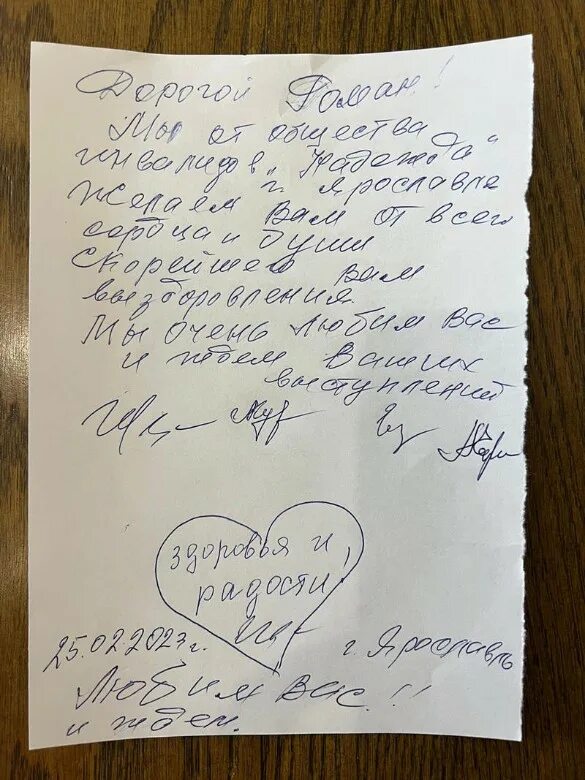 Дорогой Роман!
Мы от общества
инвалидов „Надежда"
г. Ярославля
желаем Вам от всего
сердца и души
скорейшего вам
выздоровления.
Мы очень любим Вас
и ждем Ваших
выступлений
здоровья и,
радости
25.02.2023 г.
г. Ярославль
Любим Вас!!
и ждем.